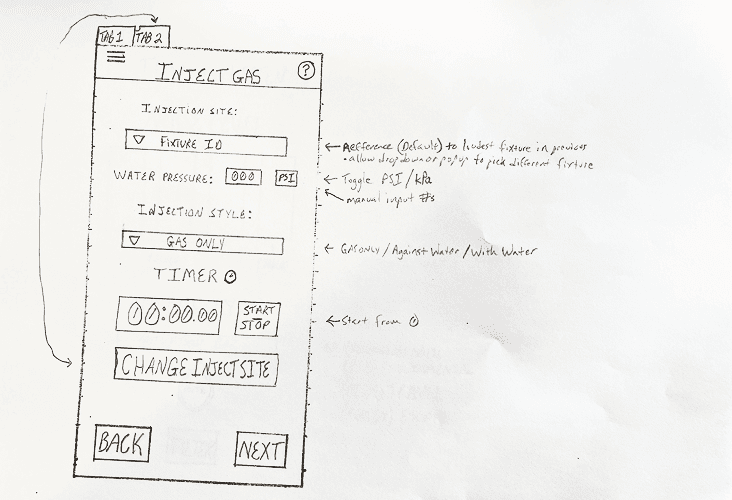 TAB 1 TAB 2
INJECT GAS ?
INJECTION SITE:
FIXTURE ID
← Refference (Default) to lowest fixture in previous
- allow dropdown or popup to pick different fixture
WATER PRESSURE: 000 PSI
← Toggle PSI/kPa
← manual input #s
INJECTION STYLE:
GAS ONLY
← GAS ONLY / Against Water / With Water
TIMER
00:00.00 START
STOP
← Start from 0
CHANGE INJECT SITE
BACK NEXT